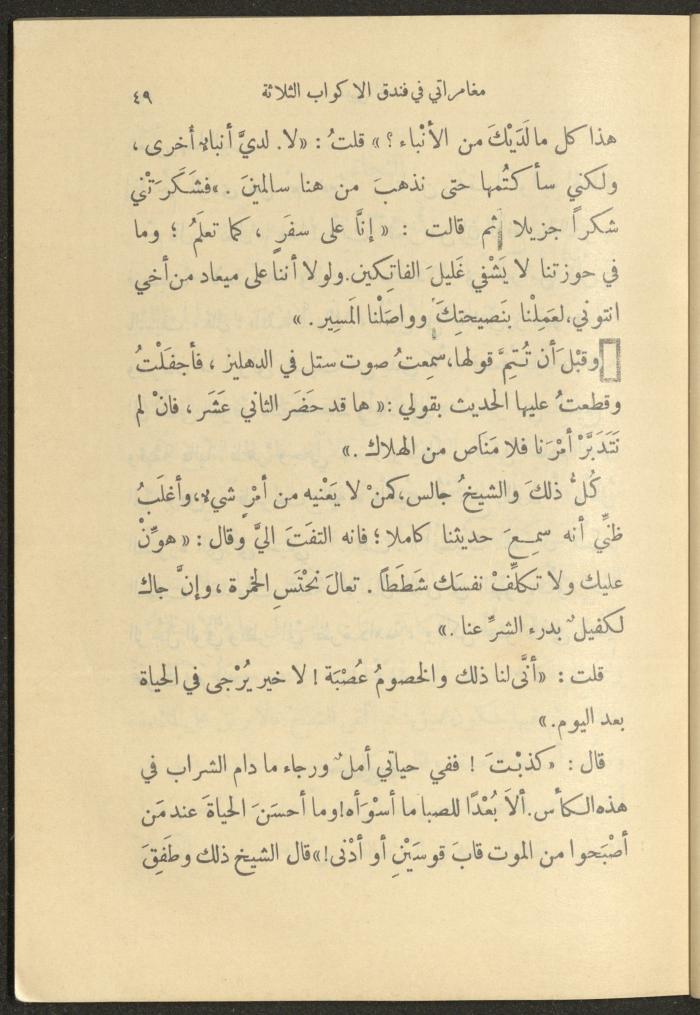 مغامراتي في فندق الاكواب الثلاثة ٤٩
هذا كل ما لَدَيْكَ من الأنْباء ؟ » قلتُ : « لا. لديَّ أنباء أخرى ،
ولكني سأكتُمها حتى نذهبَ من هنا سالمينَ . » فشَكَرَتْني
شكراً جزيلا ثم قالت : « إنَّا على سفَرٍ ، كما تعلَمُ ؛ وما
في حوزتنا لا يَشْفي غَليلَ الفاتكين. ولولا أننا على ميعاد من أخي
انتوني، لعَمِلْنا بنَصيحتِكَ وواصَلْنا المَسِير . »
وقبْلَ أن تُتِمَّ قولها، سمِعتُ صوت ستل في الدهليز ، فأجفَلْتُ
وقطعتُ عليها الحديث بقولي : « ها قد حَضَر الثاني عَشَر ، فانْ لم
نَتَدَبَّرْ أمْرَنا فلا مَنَاص من الهلاك . »
كُلُّ ذلكَ والشيخُ جالس، كمَنْ لا يَعْنيه من أمْرٍ شيء، وأغلَبُ
ظنِّي أنه سمِعَ حديثنا كاملا ؛ فانه التفَتَ اليَّ وقال : « هوِّنْ
عليك ولا تكلِّفْ نفسَك شَطَطاً . تعالَ نحْتَسِ الخمرة ، وإنَّ جاك
لكفيلٌ بدرء الشرِّ عنا . »
قلت : « أنَّى لنا ذلك والخصومُ عُصْبَة ! لا خير يُرْجى في الحياة
بعد اليوم. »
قال : « كذبْتَ ! ففي حياتي أملٌ ورجاء ما دام الشراب في
هذه الكأس. ألاَ بُعْدًا للصبا ما أسْوَأه! وما أحسَنَ الحياةَ عند مَن
أصْبَحوا من الموت قابَ قوسَيْنِ أو أدْنى! » قال الشيخ ذلك وطَفِقَ